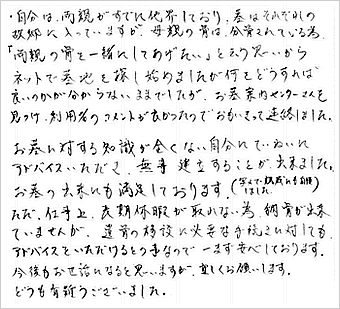 ・自分は、両親がすでに他界しており、墓はそれぞれの
故郷に入っていますが、母親の骨は、分骨されている為、
「両親の骨を一緒にしてあげたい」という思いから
ネットで墓地を探し始めましたが何をどうすれば
良いのかが分からないままでしたが、お墓案内センターさんを
見つけ、利用者のコメントが良かったのでおもいきって連絡しました。
お墓に対する知識が全くない自分にていねいに
アドバイスいただき、無事 建立することが出来ました。
お墓の出来にも満足しております。
ただ、仕事上、長期休暇が取れない為、納骨が出来
ていませんが、遺骨の移設に必要な手続きに対しても、
アドバイスをいただけるとの事なので一まず安心しております。
今後もお世話になると思いますが、宜しくお願いします。
どうも有難うございました。